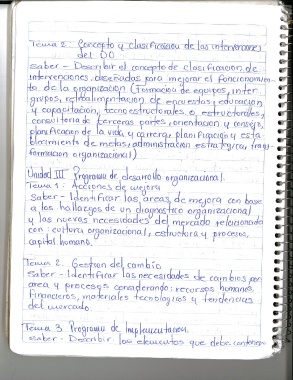 Tema 2: Concepto y clasificación de las intervenciones
del DO
Saber - Describir el concepto de clasificación de
intervenciones, diseñadas para mejorar el funcionamien-
to de la organización (Formación de equipos, inter
grupos, retroalimentación de encuestas, educación
y capacitación, tecnoestructurales o estructurales,
consultoria de terceras partes, orientación y consejo,
planificación de la vida y carrera, planificación y esta
blecimiento de metas, administración estrategica, trans
formacion organizacional)
Unidad III Programa de desarrollo organizacional.
Tema 1: Acciones de mejora
Saber - Identificar las áreas de mejora con base
a los hallazgos de un diagnostico organizacional
y las nuevas necesidades del mercado relacionado
con: cultura organizacional, estructura y procesos,
capital humano.
Tema 2. Gestion del cambio
Saber - Identificar las necesidades de cambios por
area y procesos considerando: recursos humanos,
financieros, materiales tecnologicos y tendencias
del mercado.
Tema 3. Programa de Implementacion.
Saber - Describir los elementos que debe contener